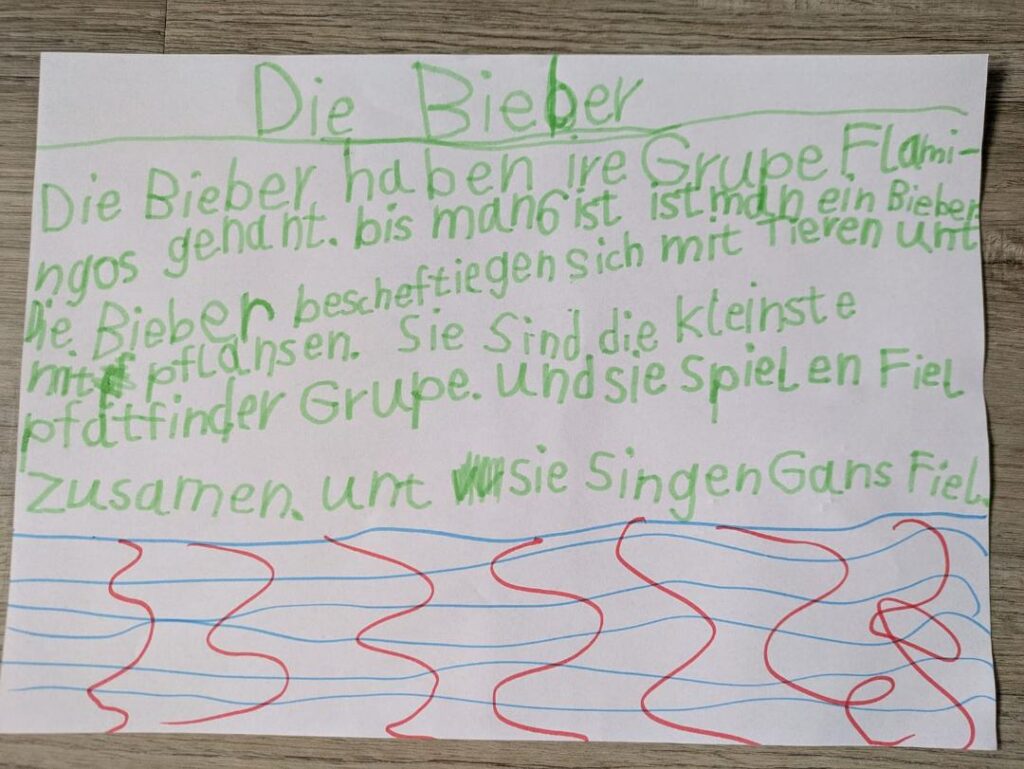 Die Bieber
Die Bieber haben ire Grupe Flami-
ngos genant. bis man 6 ist ist man ein Bieber.
Die Bieber bescheftiegen sich mit Tieren unt
mit pflansen. Sie Sind die kleinste
pfatfinder Grupe. und sie spielen Fiel
zusamen. unt sie Singen Gans Fiel.